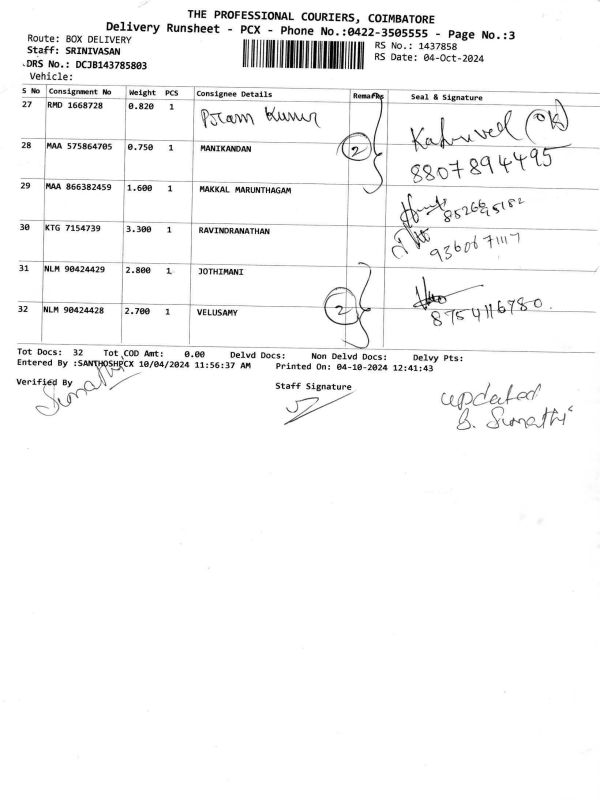 THE PROFESSIONAL COURIERS, COIMBATORE
Delivery Runsheet - PCX - Phone No.:0422-3505555 - Page No.:3
Route: BOX DELIVERY
RS No.: 1437858
Staff: SRINIVASAN
RS Date: 04-Oct-2024
DRS No.: DCJB143785803
Vehicle:
S No Consignment No Weight PCS Consignee Details Remarks Seal & Signature
27 RMD 1668728 0.820 1 Kumar
(OK)
28 MAA 575864705 0.750 1 MANIKANDAN 2 8807894495
29 MAA 866382459 1.600 1 MAKKAL MARUNTHAGAM
30 KTG 7154739 3.300 1 RAVINDRANATHAN
31 NLM 90424429 2.800 1 JOTHIMANI
32 NLM 90424428 2.700 1 VELUSAMY 2 8754116780
Tot Docs: 32 Tot COD Amt: 0.00 Delvd Docs: Non Delvd Docs: Delvy Pts:
Entered By :SANTHOSHPCX 10/04/2024 11:56:37 AM Printed On: 04-10-2024 12:41:43
Verified By
Sumathi
Staff Signature
updated
S. Sumathi